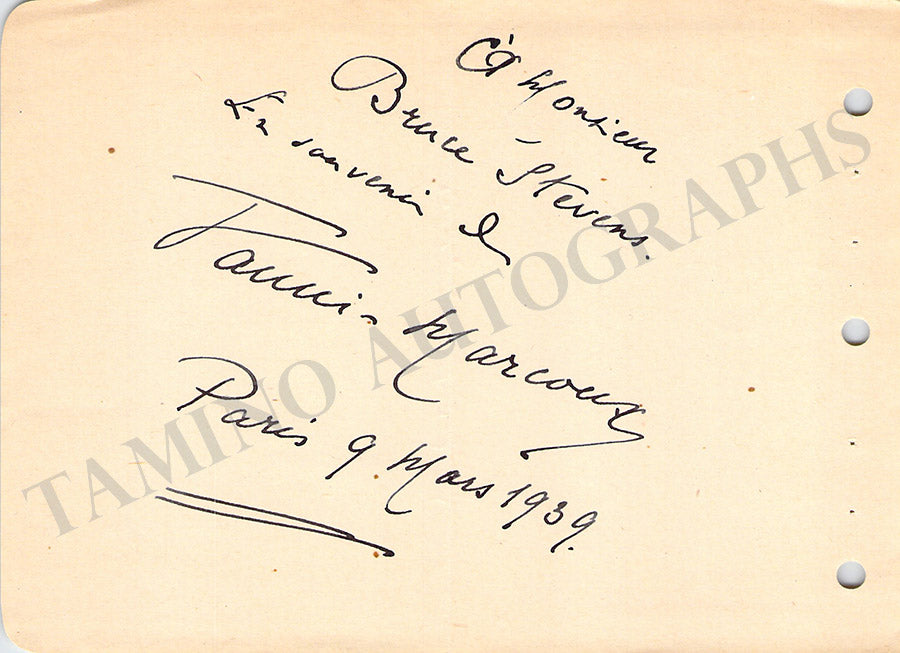 À Monsieur
Bruce Stevens.
En souvenir de
Vanni Marcoux
Paris 9 Mars 1939.
TAMINO AUTOGRAPHS